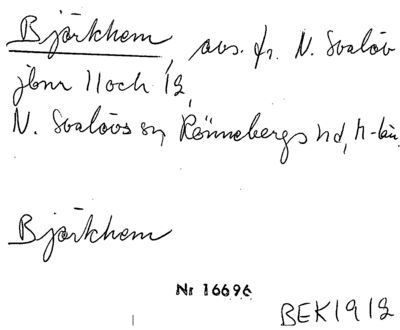 Björkhem, avs. fr. N. Svalöv
jbnr 11 och 12,
N. Svalövs sn, Rönnebergs hd, M-län.
Björkhem
Nr 16696
BEK 1912